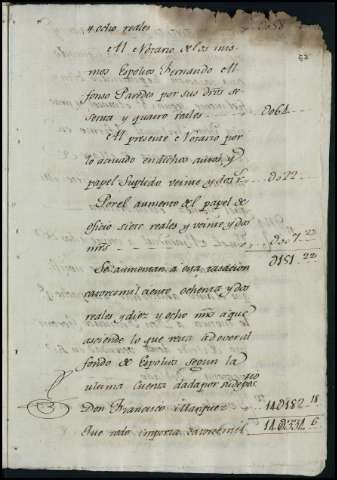 y ocho reales 0058
52
Al Notario de los mis
mos Espolios Hernando Al
fonso Paredes por sus drōs se
senta y quatro reales 0064
Al presente Notario por
lo actuado en dichos autos y
papel suplido veinte y dos rs 0022
Por el aumento del papel de
oficio siete reales y veinte y dos
mrs 0007..22
0151..22
Se aumentan a esta tasacion
catorce mil ciento ochenta y dos
reales y diez y ocho mrs a que
asciende lo que resta á dever al
fondo de Espolios segun la
ultima cuenta dada por su depositto
Don Francisco Marquez 14D182..18
Que todo importa catorce mil 14D334..6